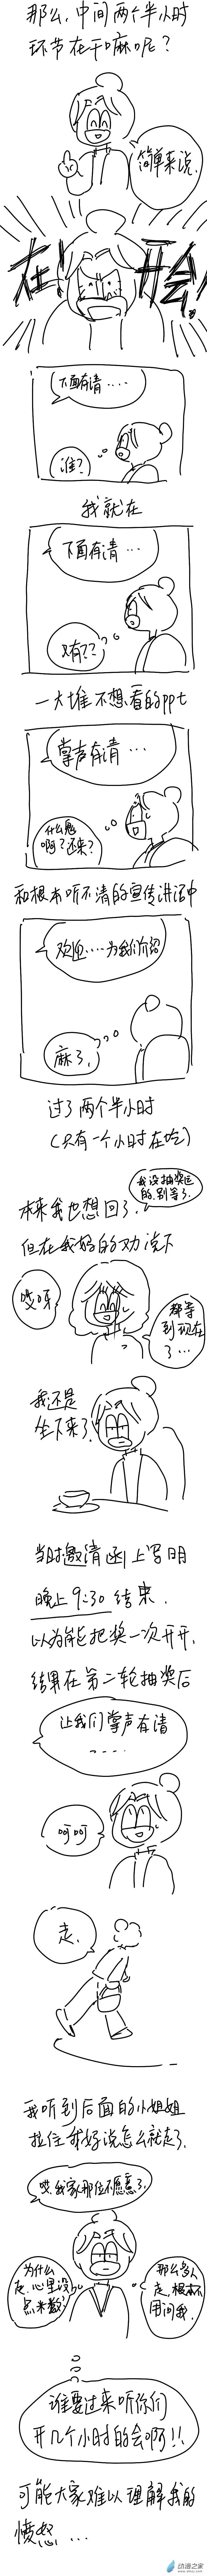 那么，中间两个半小时
环节在干嘛呢？
简单来说，
在开会！
下面有请....
谁？
我就在
下面有请...
又有??
一大堆不想看的ppt
掌声有请...
什么鬼
啊？还来？
和根本听不清的宣传讲话中
欢迎....为我们介绍
麻了，
过了两个半小时
(只有一个小时在吃)
我没抽奖运
的，别等了，
本来我也想回了，
但在我妈的劝说下
哎呀
都等
到现在
了...
我还是
坐下来了，
当时邀请函上写明
晚上9:30结束．
以为能把奖一次开开，
结果在第二轮抽奖后
让我们掌声有请
....
呵呵
走．
我听到后面的小姐姐
拉住我妈说怎么就走了，
哎，我家那位不愿意了，
为什么
走，心里没
点米数？
那么多人
走，根本不
用问我．
谁要过来听你们
开几个小时的会啊!!
可能大家难以理解我的
愤怒...
动漫之家